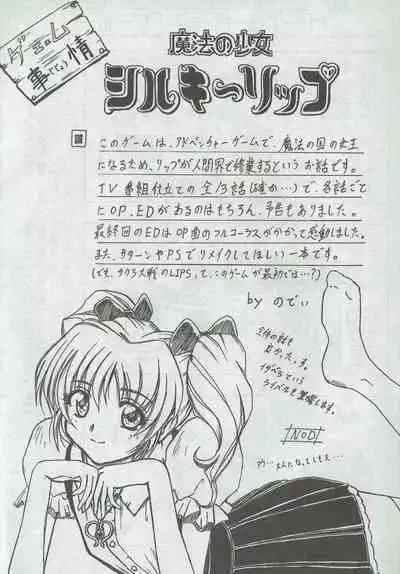 ゲームの
事情
じじょう
魔法の少女
シルキーリップ
このゲームは、アドベンチャーゲームで、魔法の国の女王
になるため、リップが人間界で修業するというお話です。
TV番組仕立ての全13話(確か…)で、各話ごと
にOP、EDがあるのはもちろん、予告もありました。
最終回のEDはOP曲のフルコーラスがかかって感動しました。
また、サターンやPSでリメイクしてほしい一本です。
(でも、サクラ大戦のLIPSって、このゲームが最初では…?)
by のでぃ
全体の話も
良かったっす。
イザベラという
ライバルも登場します。
NOD